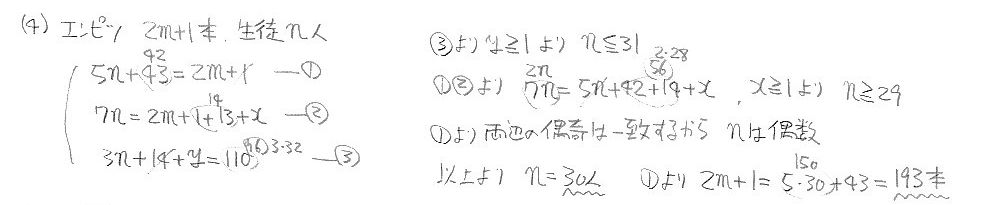 (4) エンピツ 2m+1本, 生徒n人
42
5n+43=2m+1 —①
14
7n=2m+1+13+x —②
3n+14+y=110 96 3・32 —③
③より y≧1より n≦31
2・28
2n 56
①②より 7n=5n+42+14+x , x≧1より n≧29
①より両辺の偶奇は一致するから nは偶数
150
以上より n=30人 ①より 2m+1=5・30+43=193本